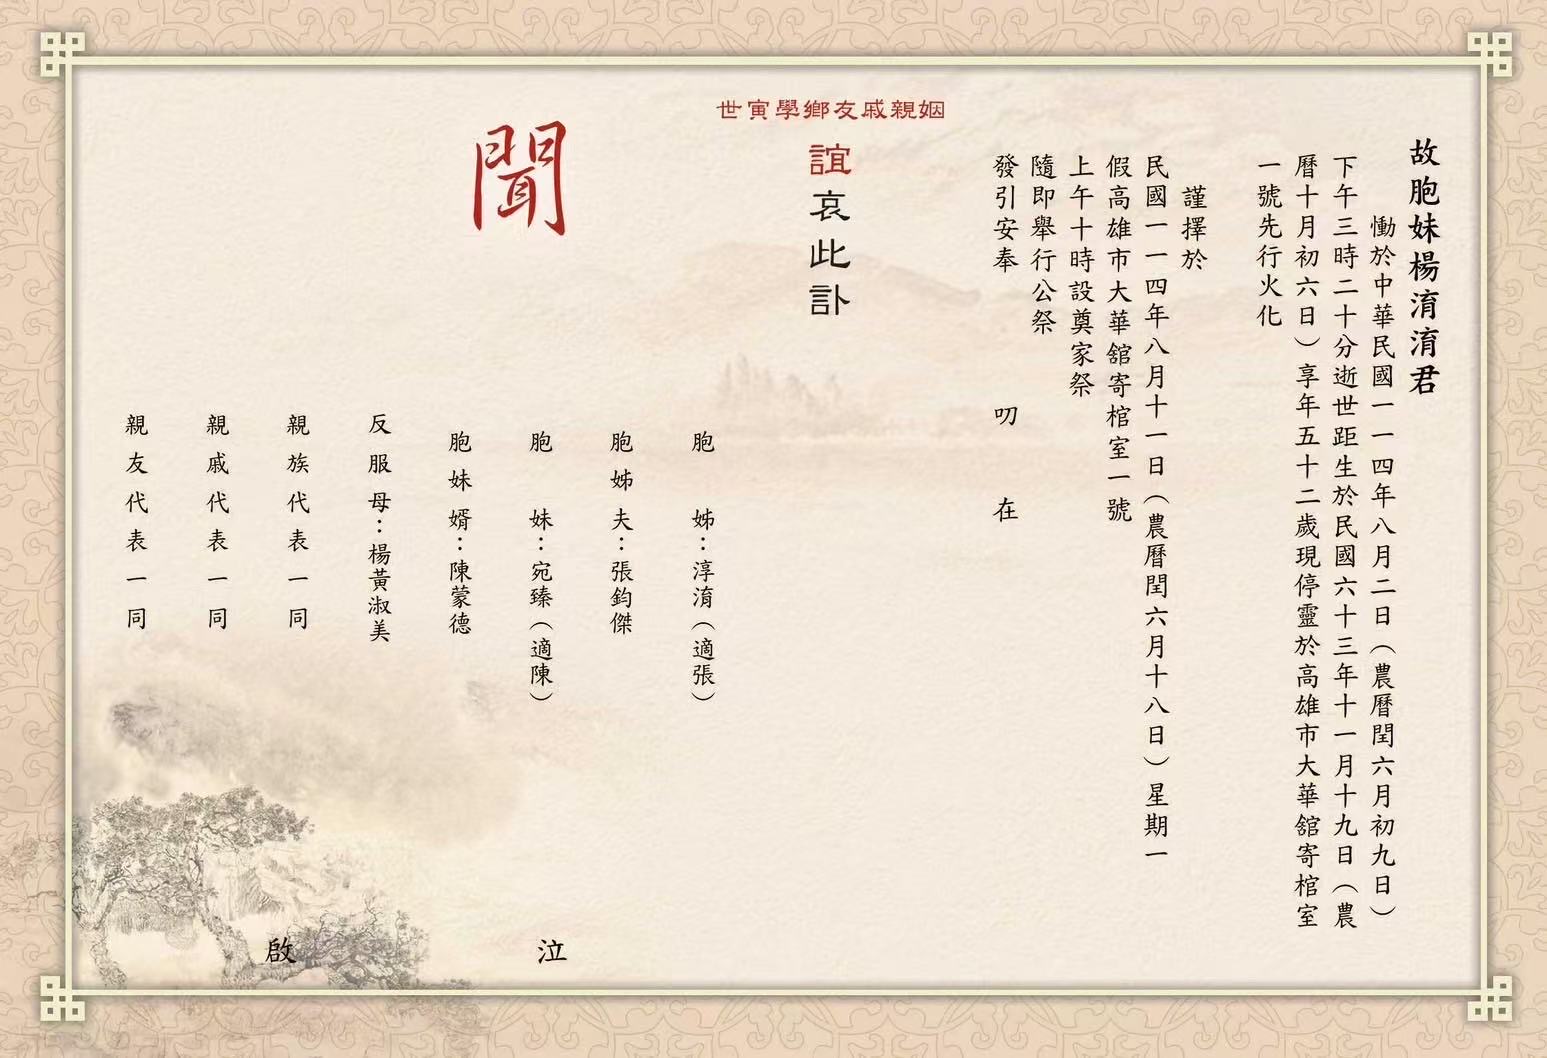 故胞妹楊淯淯君
慟於中華民國一一四年八月二日（農曆閏六月初九日）
下午三時二十分逝世距生於民國六十三年十一月十九日（農
曆十月初六日）享年五十二歲現停靈於高雄市大華舘寄棺室
一號先行火化
謹擇於
民國一一四年八月十一日（農曆閏六月十八日）星期一
假高雄市大華舘寄棺室一號
上午十時設奠家祭
隨即舉行公祭
發引安奉 叨 在
姻親戚友鄉學寅世
誼哀此訃
聞
胞 姊：淳淯（適張）
胞姊夫：張鈞傑
胞 妹：宛臻（適陳）
胞妹婿：陳蒙德
反服母：楊黃淑美
親族代表一同
親戚代表一同
親友代表一同
泣
啟